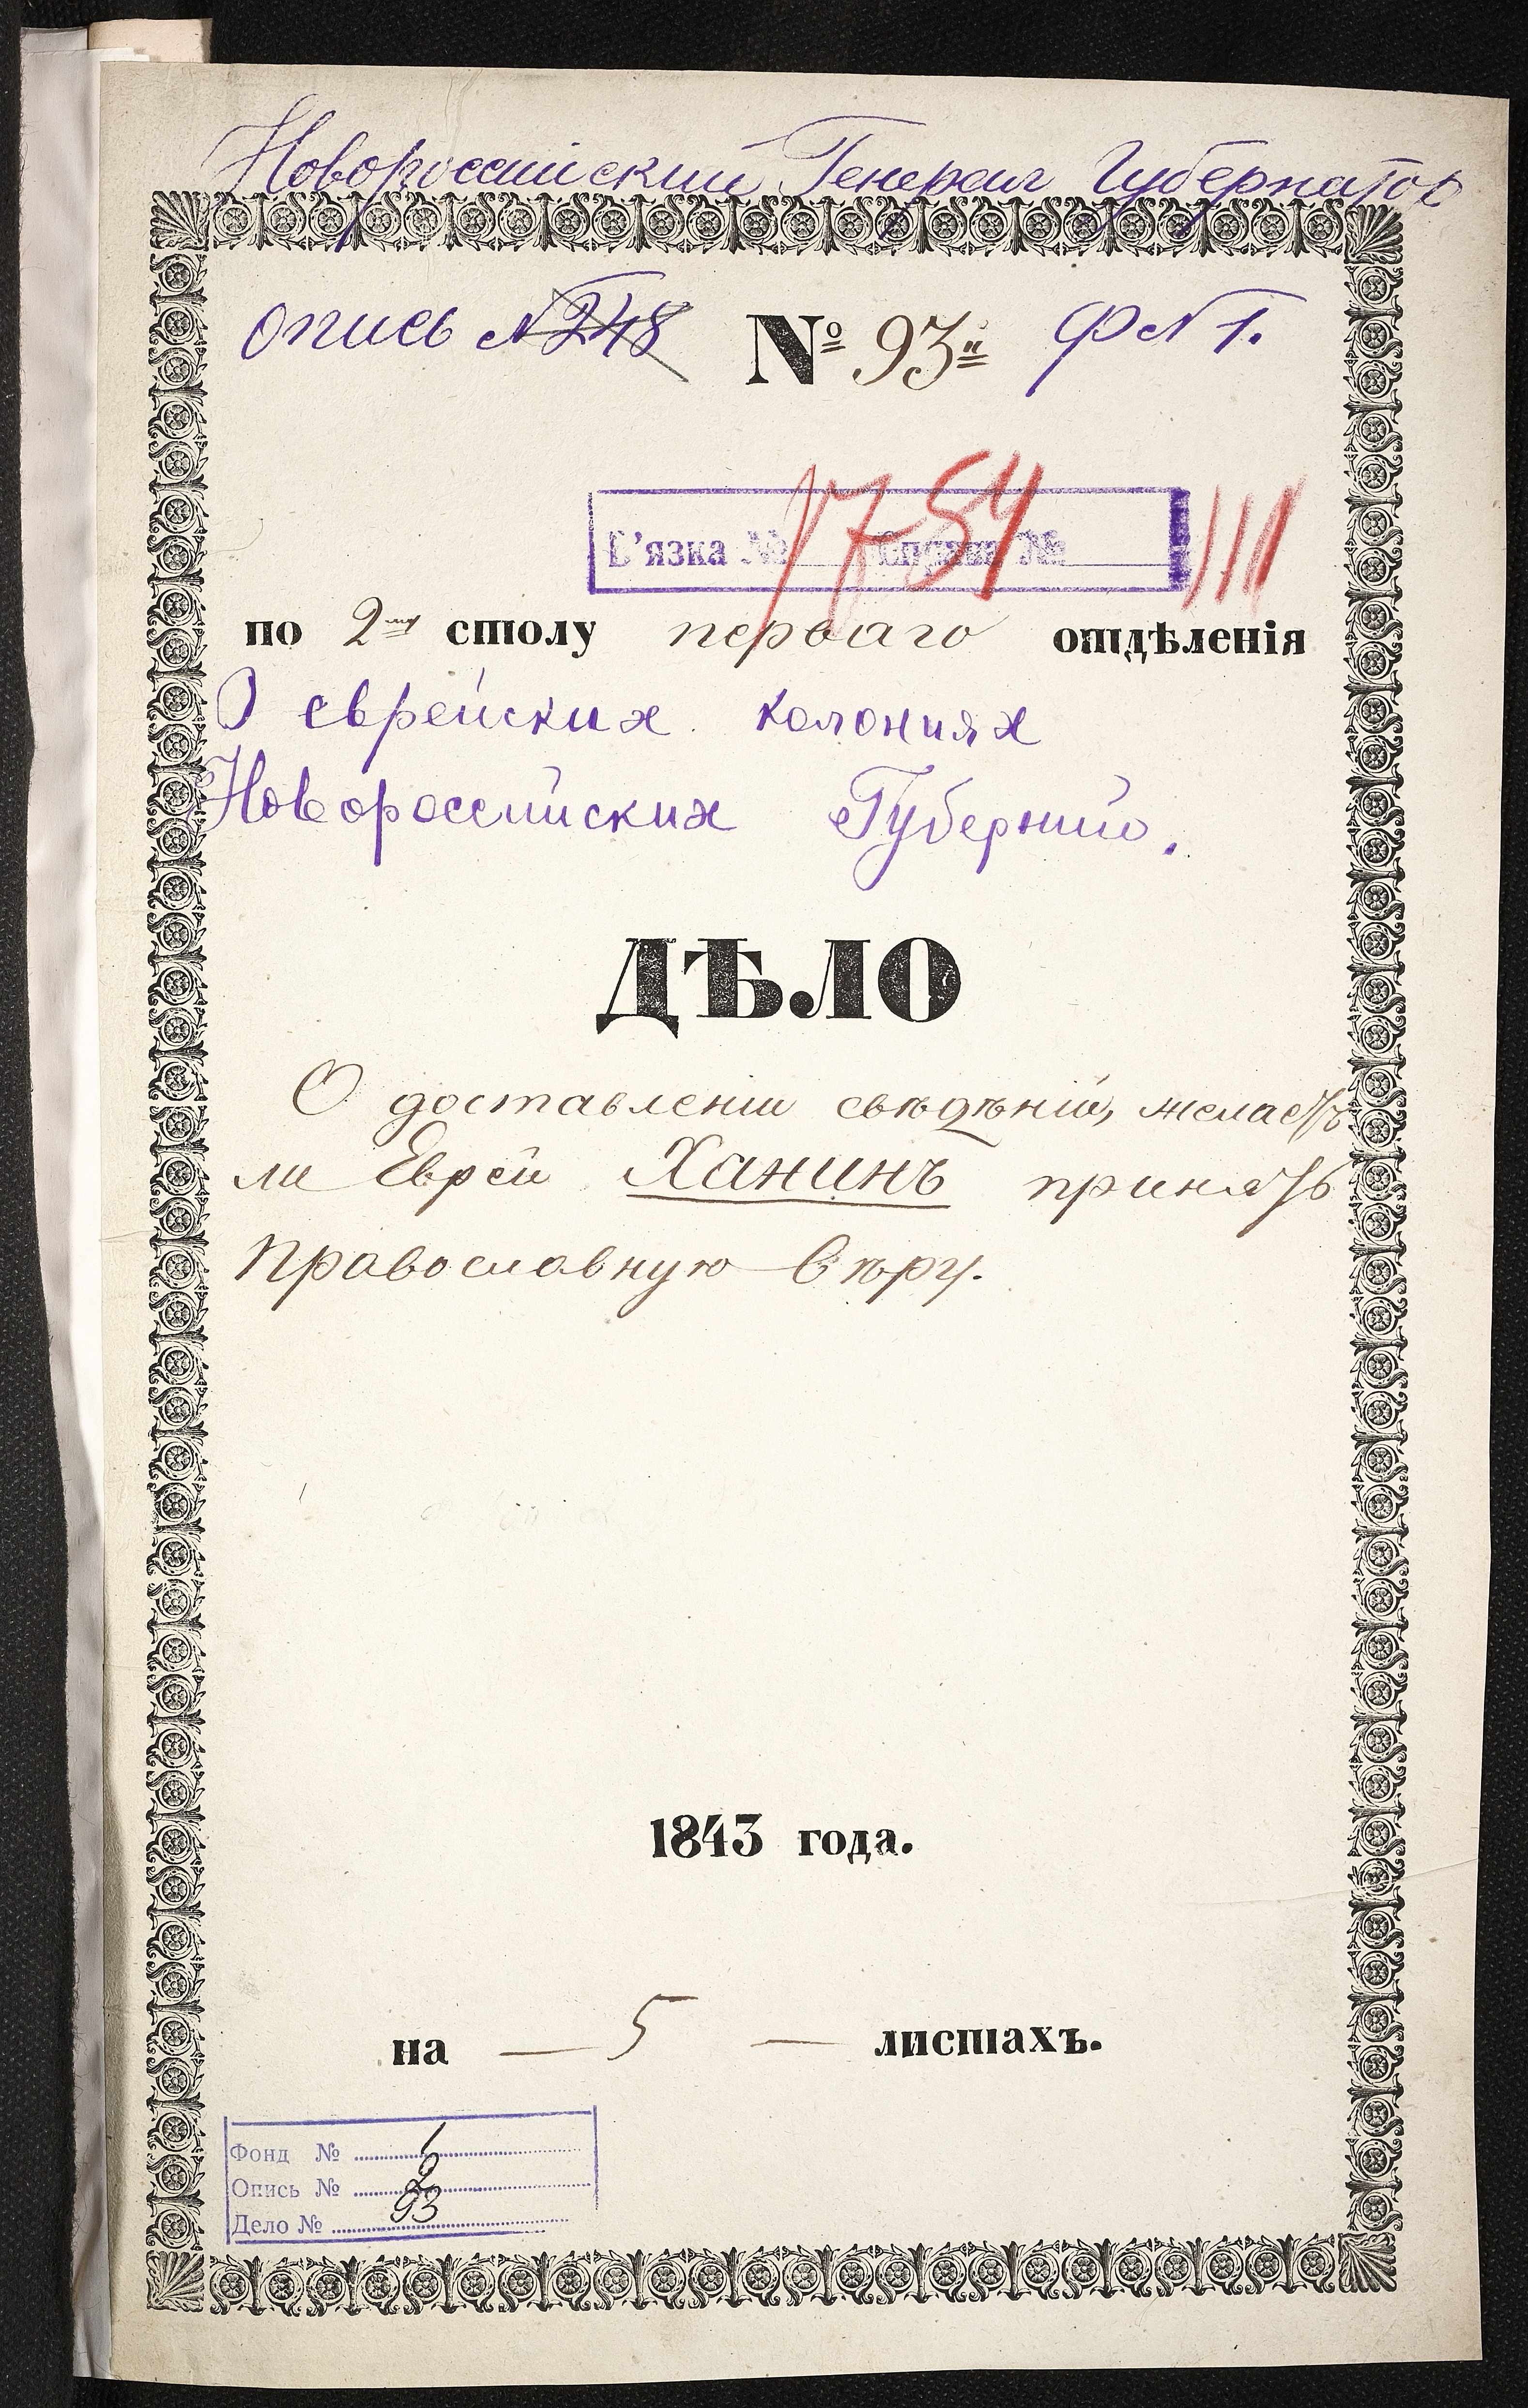 Новороссийский Генерал Губернатор
опись №248 № 93 Ф№ 1.
1754 III
В'язка № Справа №
по 2му столу перваго отдѣленія
О еврейских колониях
Новороссийских Губерний.
ДѢЛО
О доставленіи свѣдѣній, желаетъ
ли Еврей Ханинъ принять
Православную вѣру.
1843 года.
на — 5 — листахъ.
Фонд № 1
Опись № 2
Дело № 93